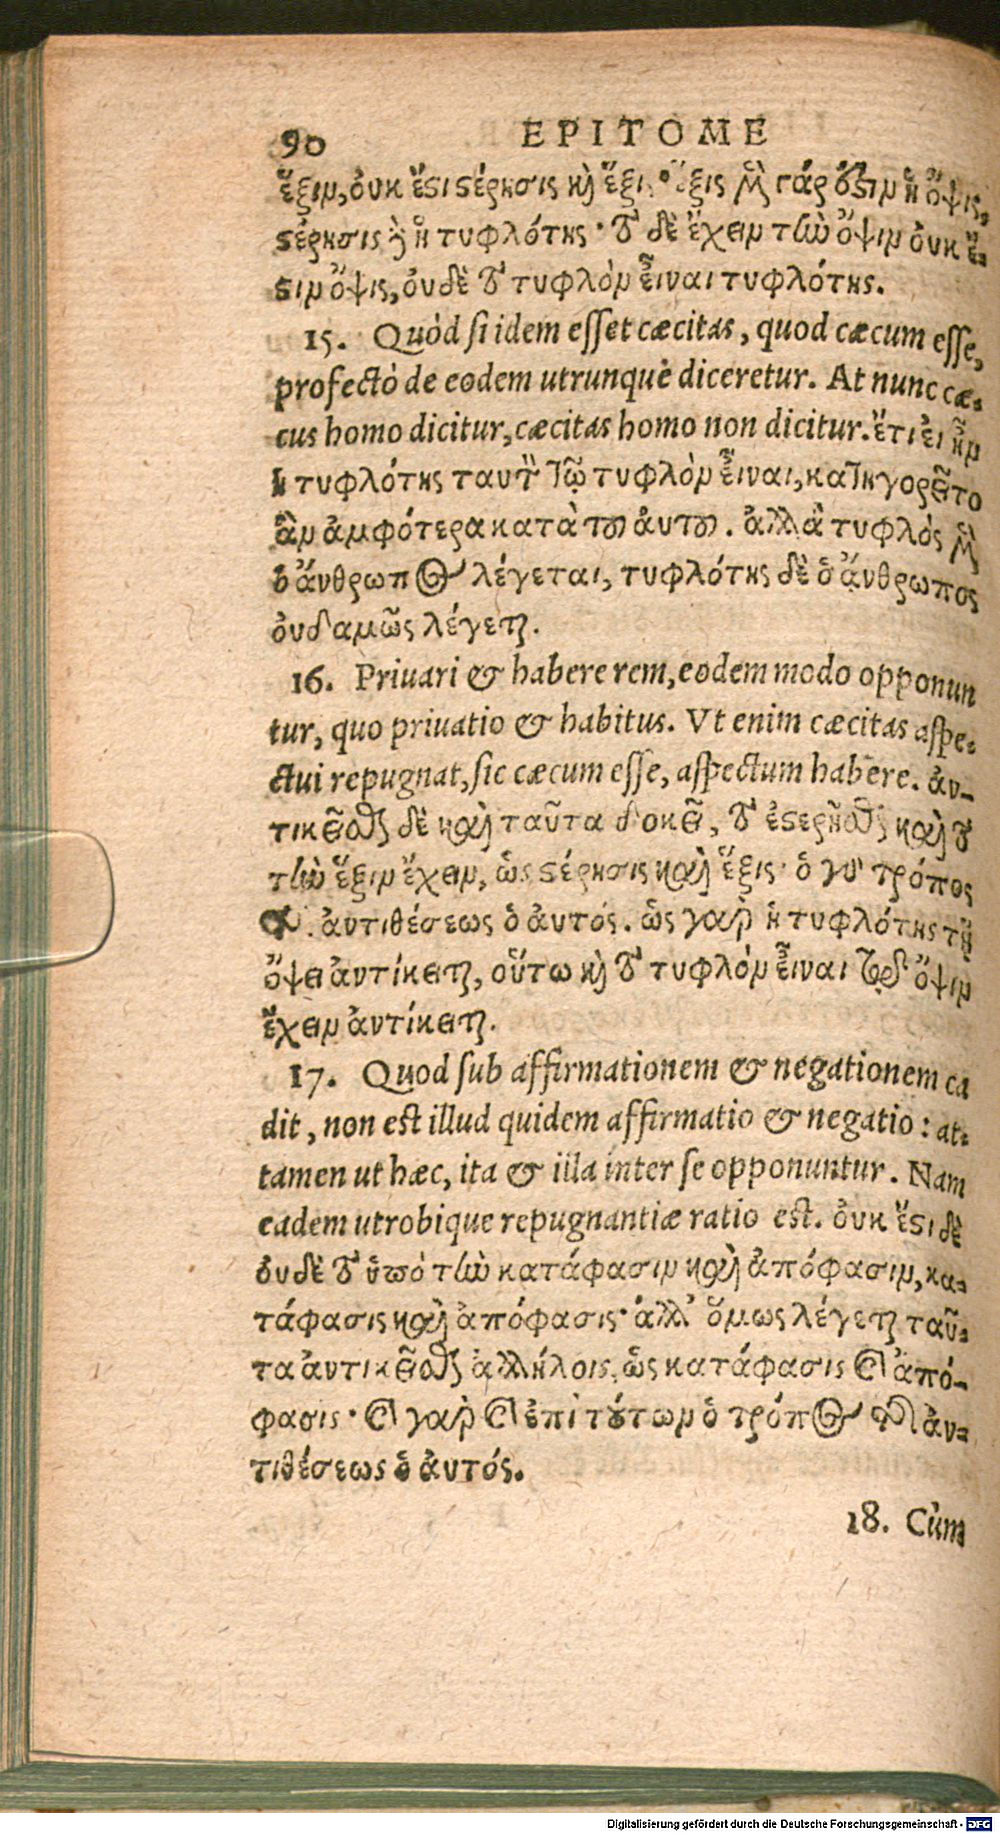 90 EPITOME
ἕξιν, οὐκ ἔστι στέρησις καὶ ἕξις· ἕξις μὲν γάρ ὅστιν ἡ ὄψις,
στέρησις δὲ ἡ τυφλότης· τὸ δὲ ἔχειν τὴν ὄψιν οὐκ ἔ-
στιν ὄψις, οὐδὲ τὸ τυφλὸν εἶναι τυφλότης.
15. Quòd si idem esset cæcitas, quod cæcum esse,
profectò de eodem utrunquè diceretur. At nunc cæ-
cus homo dicitur, cæcitas homo non dicitur. ἔτι εἰ ἦν
ἡ τυφλότης ταυτὸν τῷ τυφλὸν εἶναι, κατηγορεῖτο
ἂν ἀμφότερα κατὰ τοῦ ἀυτοῦ. ἀλλὰ τυφλός μὲν
ὁ ἄνθρωπος λέγεται, τυφλότης δὲ ὁ ἄνθρωπος
οὐδαμῶς λέγεται.
16. Priuari & habere rem, eodem modo opponun
tur, quo priuatio & habitus. Vt enim cæcitas aspe-
ctui repugnat, sic cæcum esse, aspectum habere. ἀν-
τικεῖσθαι δὲ καὶ ταῦτα δοκεῖ, τὸ ἐστερῆσθαι καὶ τὸ
τὴν ἕξιν ἔχειν, ὡς στέρησις καὶ ἕξις· ὁ γὰρ τρόπος
τῆς ἀντιθέσεως ὁ ἀυτός. ὡς γὰρ ἡ τυφλότης τῇ
ὄψει ἀντίκειται, οὕτω καὶ τὸ τυφλόν εἶναι τῷ ὄψιν
ἔχειν ἀντίκειται.
17. Quod sub affirmationem & negationem ca
dit, non est illud quidem affirmatio & negatio: at-
tamen ut hæc, ita & illa inter se opponuntur. Nam
eadem utrobique repugnantiæ ratio est. οὐκ ἔστι δὲ
ὀυδὲ τὸ ὑπὸ τὴν κατάφασιν καὶ ἀπόφασιν, κα-
τάφασις καὶ ἀπόφασις· ἀλλ' ὅμως λέγεται ταῦ-
τα ἀντικεῖσθαι ἀλλήλοις, ὡς κατάφασις καὶ ἀπό-
φασις· καὶ γὰρ καὶ ἐπὶ τούτων ὁ τρόπος τῆς ἀν-
τιθέσεως ὁ ἀυτός.
18. Cùm
Digitalisierung gefördert durch die Deutsche Forschungsgemeinschaft - DFG